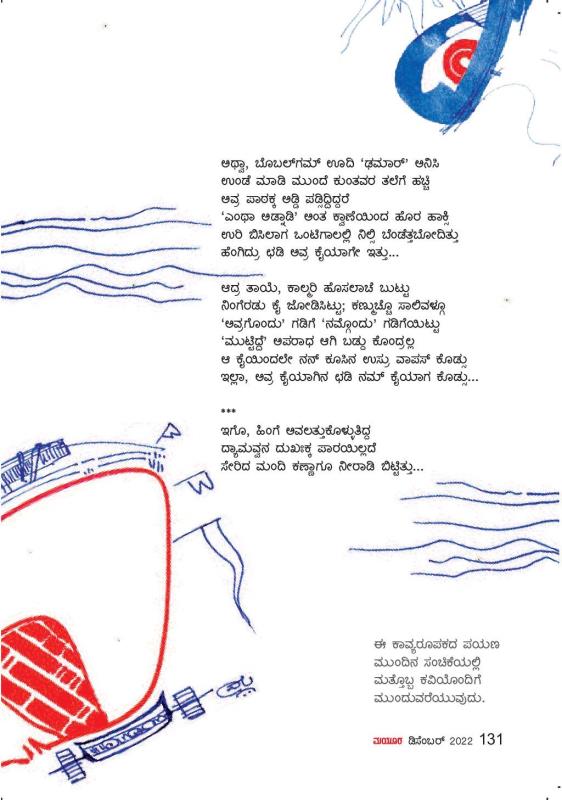 ಅಥ್ವಾ, ಬೊಬಲ್‌ಗಮ್ ಊದಿ 'ಢಮಾರ್' ಅನಿಸಿ
ಉಂಡೆ ಮಾಡಿ ಮುಂದೆ ಕುಂತವರ ತಲೆಗೆ ಹಚ್ಚಿ
ಅವ್ರ ಪಾಠಕ್ಕ ಅಡ್ಡಿ ಪಡ್ಸಿದ್ದಿದ್ದರೆ
'ಎಂಥಾ ಆಡ್ನಾಡಿ' ಅಂತ ಕ್ವಾಣೆಯಿಂದ ಹೊರ ಹಾಕ್ಸಿ
ಉರಿ ಬಿಸಿಲಾಗ ಒಂಟಿಗಾಲಲ್ಲಿ ನಿಲ್ಸಿ ಬೆಂಡೆತ್ತಬೋದಿತ್ತು
ಹೆಂಗಿದ್ರು ಛಡಿ ಅವ್ರ ಕೈಯಾಗೇ ಇತ್ತು...
ಆದ್ರ ತಾಯೆ, ಕಾಲ್ಮರಿ ಹೊಸಲಾಚೆ ಬುಟ್ಟು
ನಿಂಗೆರಡು ಕೈ ಜೋಡಿಸಿಟ್ಟು; ಕಣ್ಮುಚ್ಚೊ ಸಾಲಿವಳ್ಗೂ
'ಅವ್ರಗೊಂದು' ಗಡಿಗೆ 'ನಮ್ಗೊಂದು' ಗಡಿಗೆಯಿಟ್ಟು
'ಮುಟ್ಟಿದ್ದೆ' ಅಪರಾಧ ಆಗಿ ಬಡ್ದು ಕೊಂದ್ರಲ್ಲ
ಆ ಕೈಯಿಂದಲೇ ನನ್ ಕೂಸಿನ ಉಸ್ರು ವಾಪಸ್ ಕೊಡ್ಸು
ಇಲ್ಲಾ, ಅವ್ರ ಕೈಯಾಗಿನ ಛಡಿ ನಮ್ ಕೈಯಾಗ ಕೊಡ್ಸು...
***
ಇಗೊ, ಹಿಂಗೆ ಅವಲತ್ತುಕೊಳ್ಳುತಿದ್ದ
ದ್ಯಾಮವ್ವನ ದುಖಃಕ್ಕ ಪಾರಯಿಲ್ಲದೆ
ಸೇರಿದ ಮಂದಿ ಕಣ್ಣಾಗೂ ನೀರಾಡಿ ಬಿಟ್ಟಿತ್ತು...
ಈ ಕಾವ್ಯರೂಪಕದ ಪಯಣ
ಮುಂದಿನ ಸಂಚಿಕೆಯಲ್ಲಿ
ಮತ್ತೊಬ್ಬ ಕವಿಯೊಂದಿಗೆ
ಮುಂದುವರೆಯುವುದು.
ಮಯೂರ ಡಿಸೆಂಬರ್ 2022 131